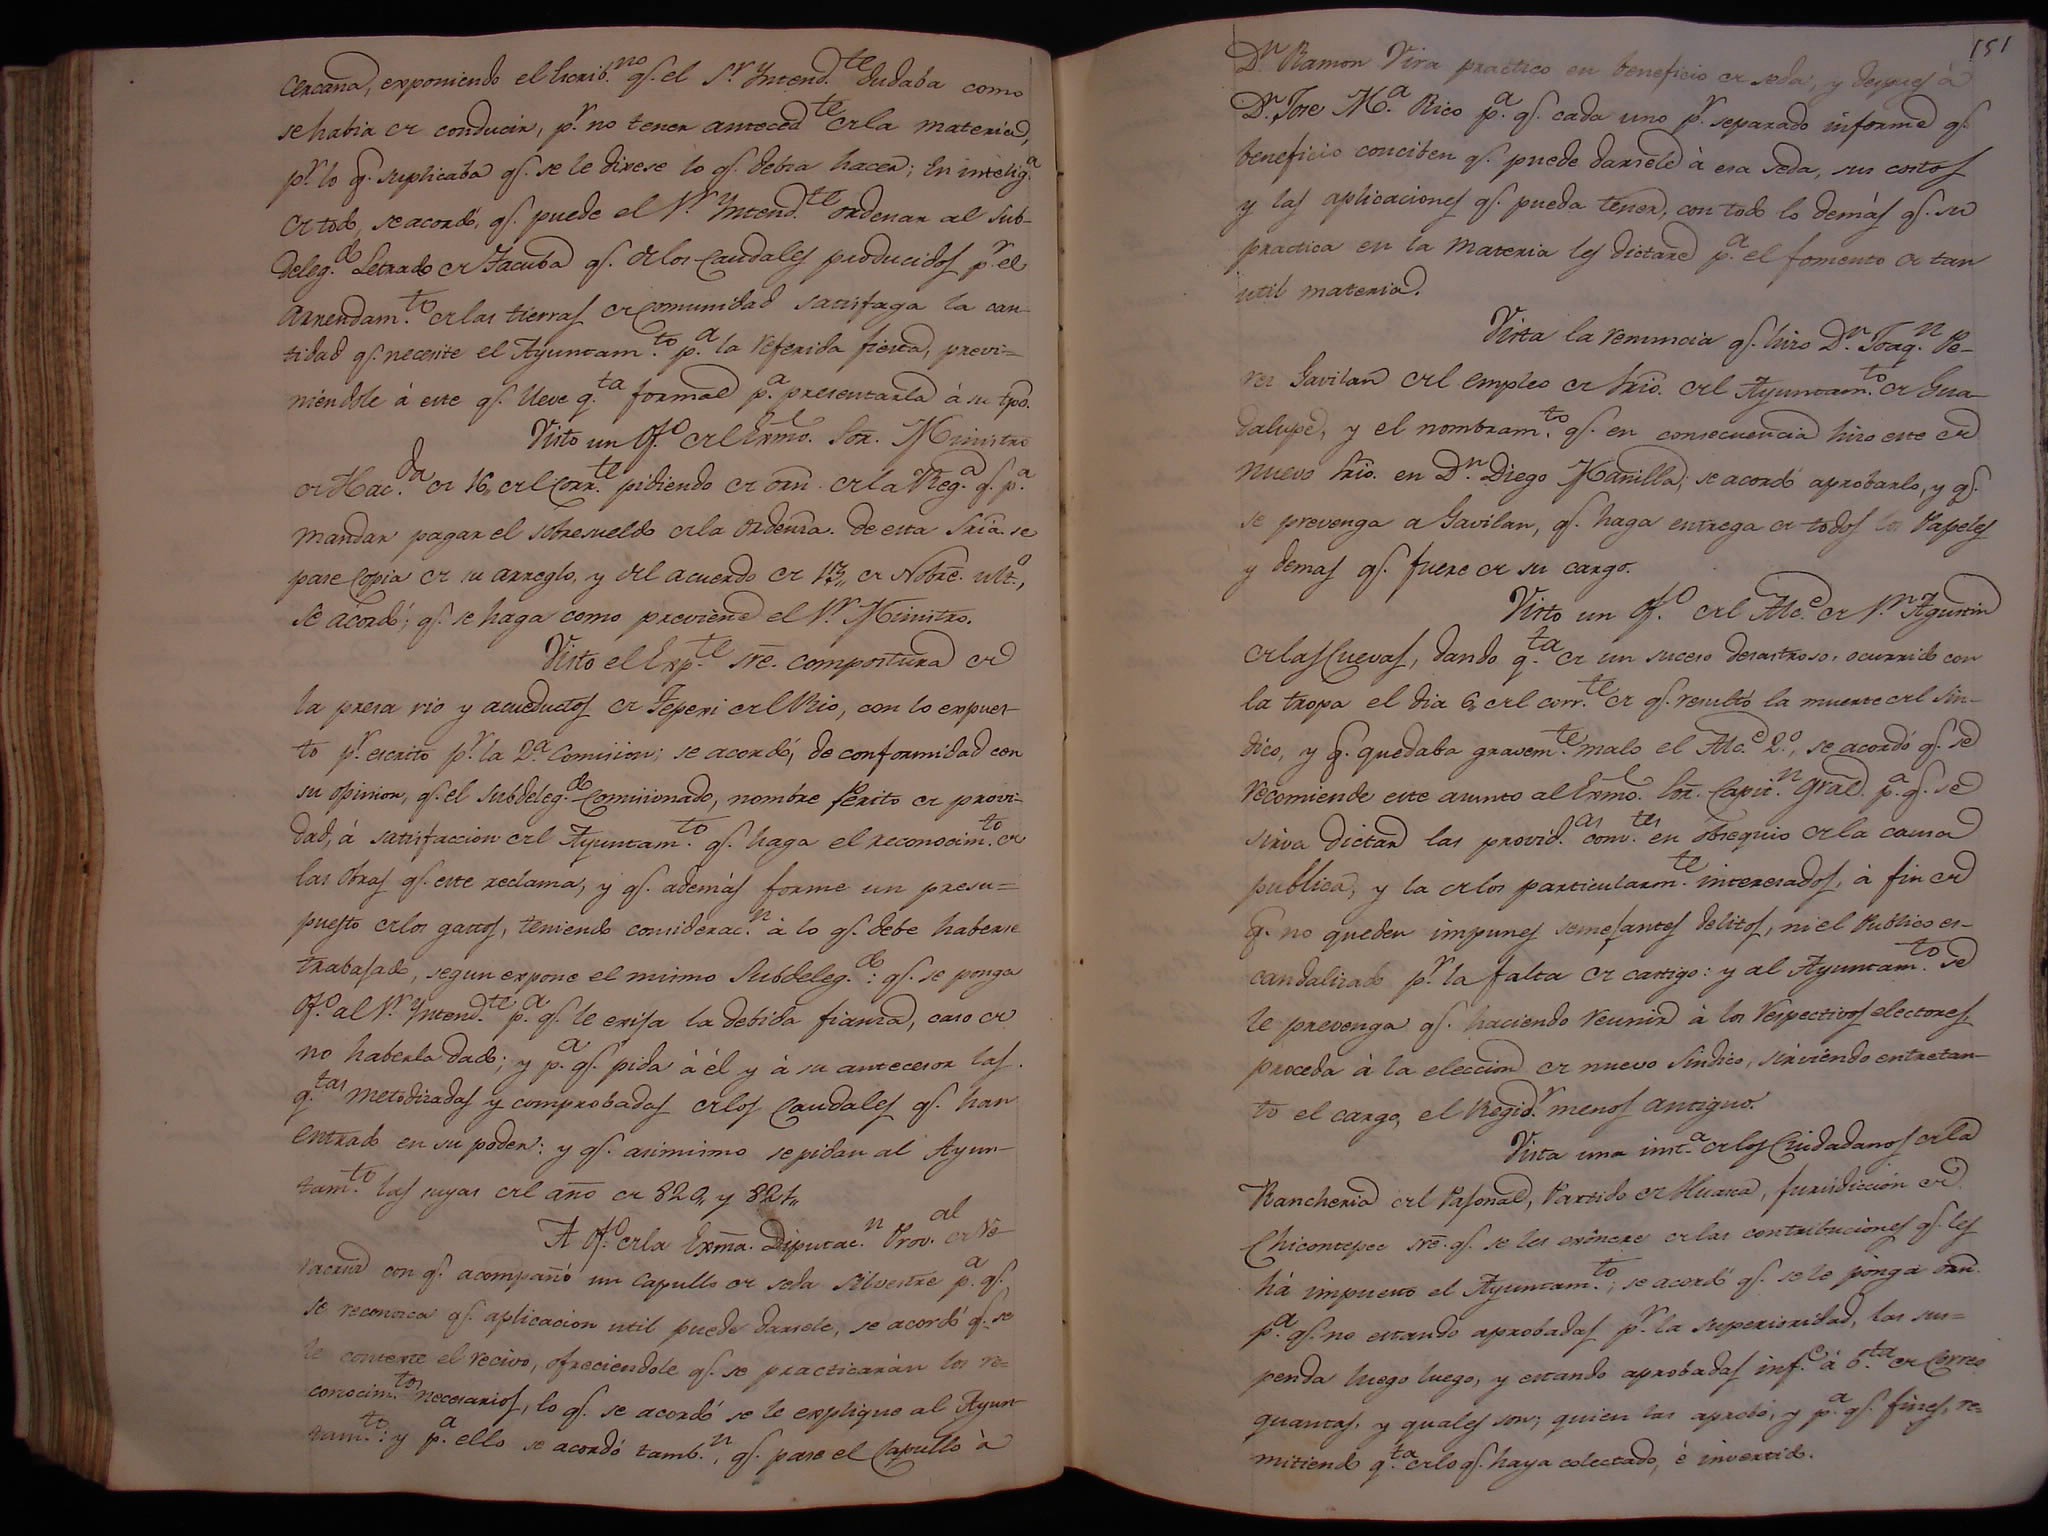 cercana, exponiendo el Escrib.no q.e el Sr. Yntend.te dudaba como
se habia de conducir, p.r no tener anteced.te de la materia,
p.r lo q. suplicaba q.e se le dixese lo q.e debia hacer; En intelig.a
de todo, se acordó, q.e puede el Sr. Yntend.te ordenar al Sub-
deleg.do Letrado de Tacuba q.e de los caudales producidos p.r el
arrendam.to de las tierras de comunidad satisfaga la can-
tidad q.e necesite el Ayuntam.to p.a la referida fiesta, previ=
niendole á este q.e lleve q.ta formal p.a presentarla á su tpo.
Visto un Of.o del Exmo. Sor. Ministro
de Hac.da de 16,, del corr.te pidiendo de orn. de la Reg.a q.e p.a
mandar pagar el sobresueldo de la Ordenza. de esta Sria. se
pase copia de su arreglo, y del acuerdo de 13,, de Nobre. ult.o,
se acordó; q.e se haga como previene el Sr. Ministro.
Visto el Exp.te sre. compostura de
la presa rio y acueductos de Tepexi del Rio, con lo expues-
to p.r escrito p.r la 2.a Comision; se acordó, de conformidad con
su opinion, q.e el Subdeleg.do Comisionado, nombre Perito de provi-
dad, á satisfaccion del Ayuntam.to q.e haga el reconocim.to de
las obras q.e este reclama, y q.e además forme un presu=
puesto de los gastos, teniendo considerac.n à lo q.e debe haberse
trabajado, segun expone el mismo Subdeleg.do: q.e se ponga
Of.o al Sr. Yntend.te p.a q.e le exija la debida fianza, caso de
no haberla dado; y p.a q.e pida à él y à su antecesor las
q.tas metodizadas y comprobadas de los caudales q.e han
entrado en su poder: y q.e asimismo se pidan al Ayun-
tam.to las suyas del año de 820,, y 821,,
A Of.o de la Exma. Diputac.n Prov.al de Ve-
racruz con q.e acompañó un Capullo de seda silvestre p.a q.e
se reconozca q.e aplicacion util puede darsele, se acordó q.e se
le conteste el recivo, ofreciendole q.e se practicarán los re=
conocim.tos necesarios, lo q.e se acordó se le explique al Ayun
tam.to: y p.a ello se acordó tamb.n, q.e pase el Capullo à
151
Dn. Ramon Vira practico en beneficio de seda, y despues à
Dn. Jose M.a Rico p.a q.e cada uno p.r separado informe q.e
beneficio conciben q.e puede darsele à esa seda, sus costos
y las aplicaciones q.e pueda tener, con todo lo demás q.e su
practica en la materia les dictare p.a el fomento de tan
util materia.
Vista la renuncia q.e hizo Dn. Joaq.n Pe-
rez Gavilan del empleo de Srio. del Ayuntam.to de Gua-
dalupe, y el nombram.to q.e en consecuencia hizo este de
nuevo Srio. en Dn. Diego Manilla; se acordó aprobarlo, y q.e
se prevenga a Gavilan, q.e haga entrega de todos los Papeles
y demas q.e fuere de su cargo.
Visto un Of.o del Alc.e de Sn. Agustin
de las Cuevas, dando q.ta de un suceso desastroso, ocurrido con
la tropa el dia 6,, del corr.te de q.e resultó la muerte del Sin-
dico, y q. quedaba gravem.te malo el Alc.e 2.o, se acordó q.e se
recomiende este asunto al Exmo. Sor. Capit.n Gral. p.a q.e se
sirva dictar las provid.as conv.tes en obsequio de la causa
publica, y la de los particularm.te interesados, à fin de
q. no queden impunes semejantes delitos, ni el Publico es-
candalizado p.r la falta de castigo: y al Ayuntam.to se
le prevenga q.e haciendo reunir à los respectivos electores,
proceda à la eleccion de nuevo Sindico, sirviendo entretan-
to el cargo, el Regid.r menos antiguo.
Vista una inst.a de los Ciudadanos de la
Rancheria del Pajonal, Partido de Huasca, jurisdiccion de
Chicontepec sre. q.e se les exônere de las contribuciones q.e les
há impuesto el Ayuntam.to; se acordó q.e se le ponga orn.
p.a q.e no estando aprobadas p.r la superioridad, las sus=
penda luego luego, y estando aprobadas inf.e á b.ta de Correo
quantas, y quales son; quien las aprobó, y p.a q.e fines, re=
mitiendo q.ta de lo q.e haya colectado, é invertido.